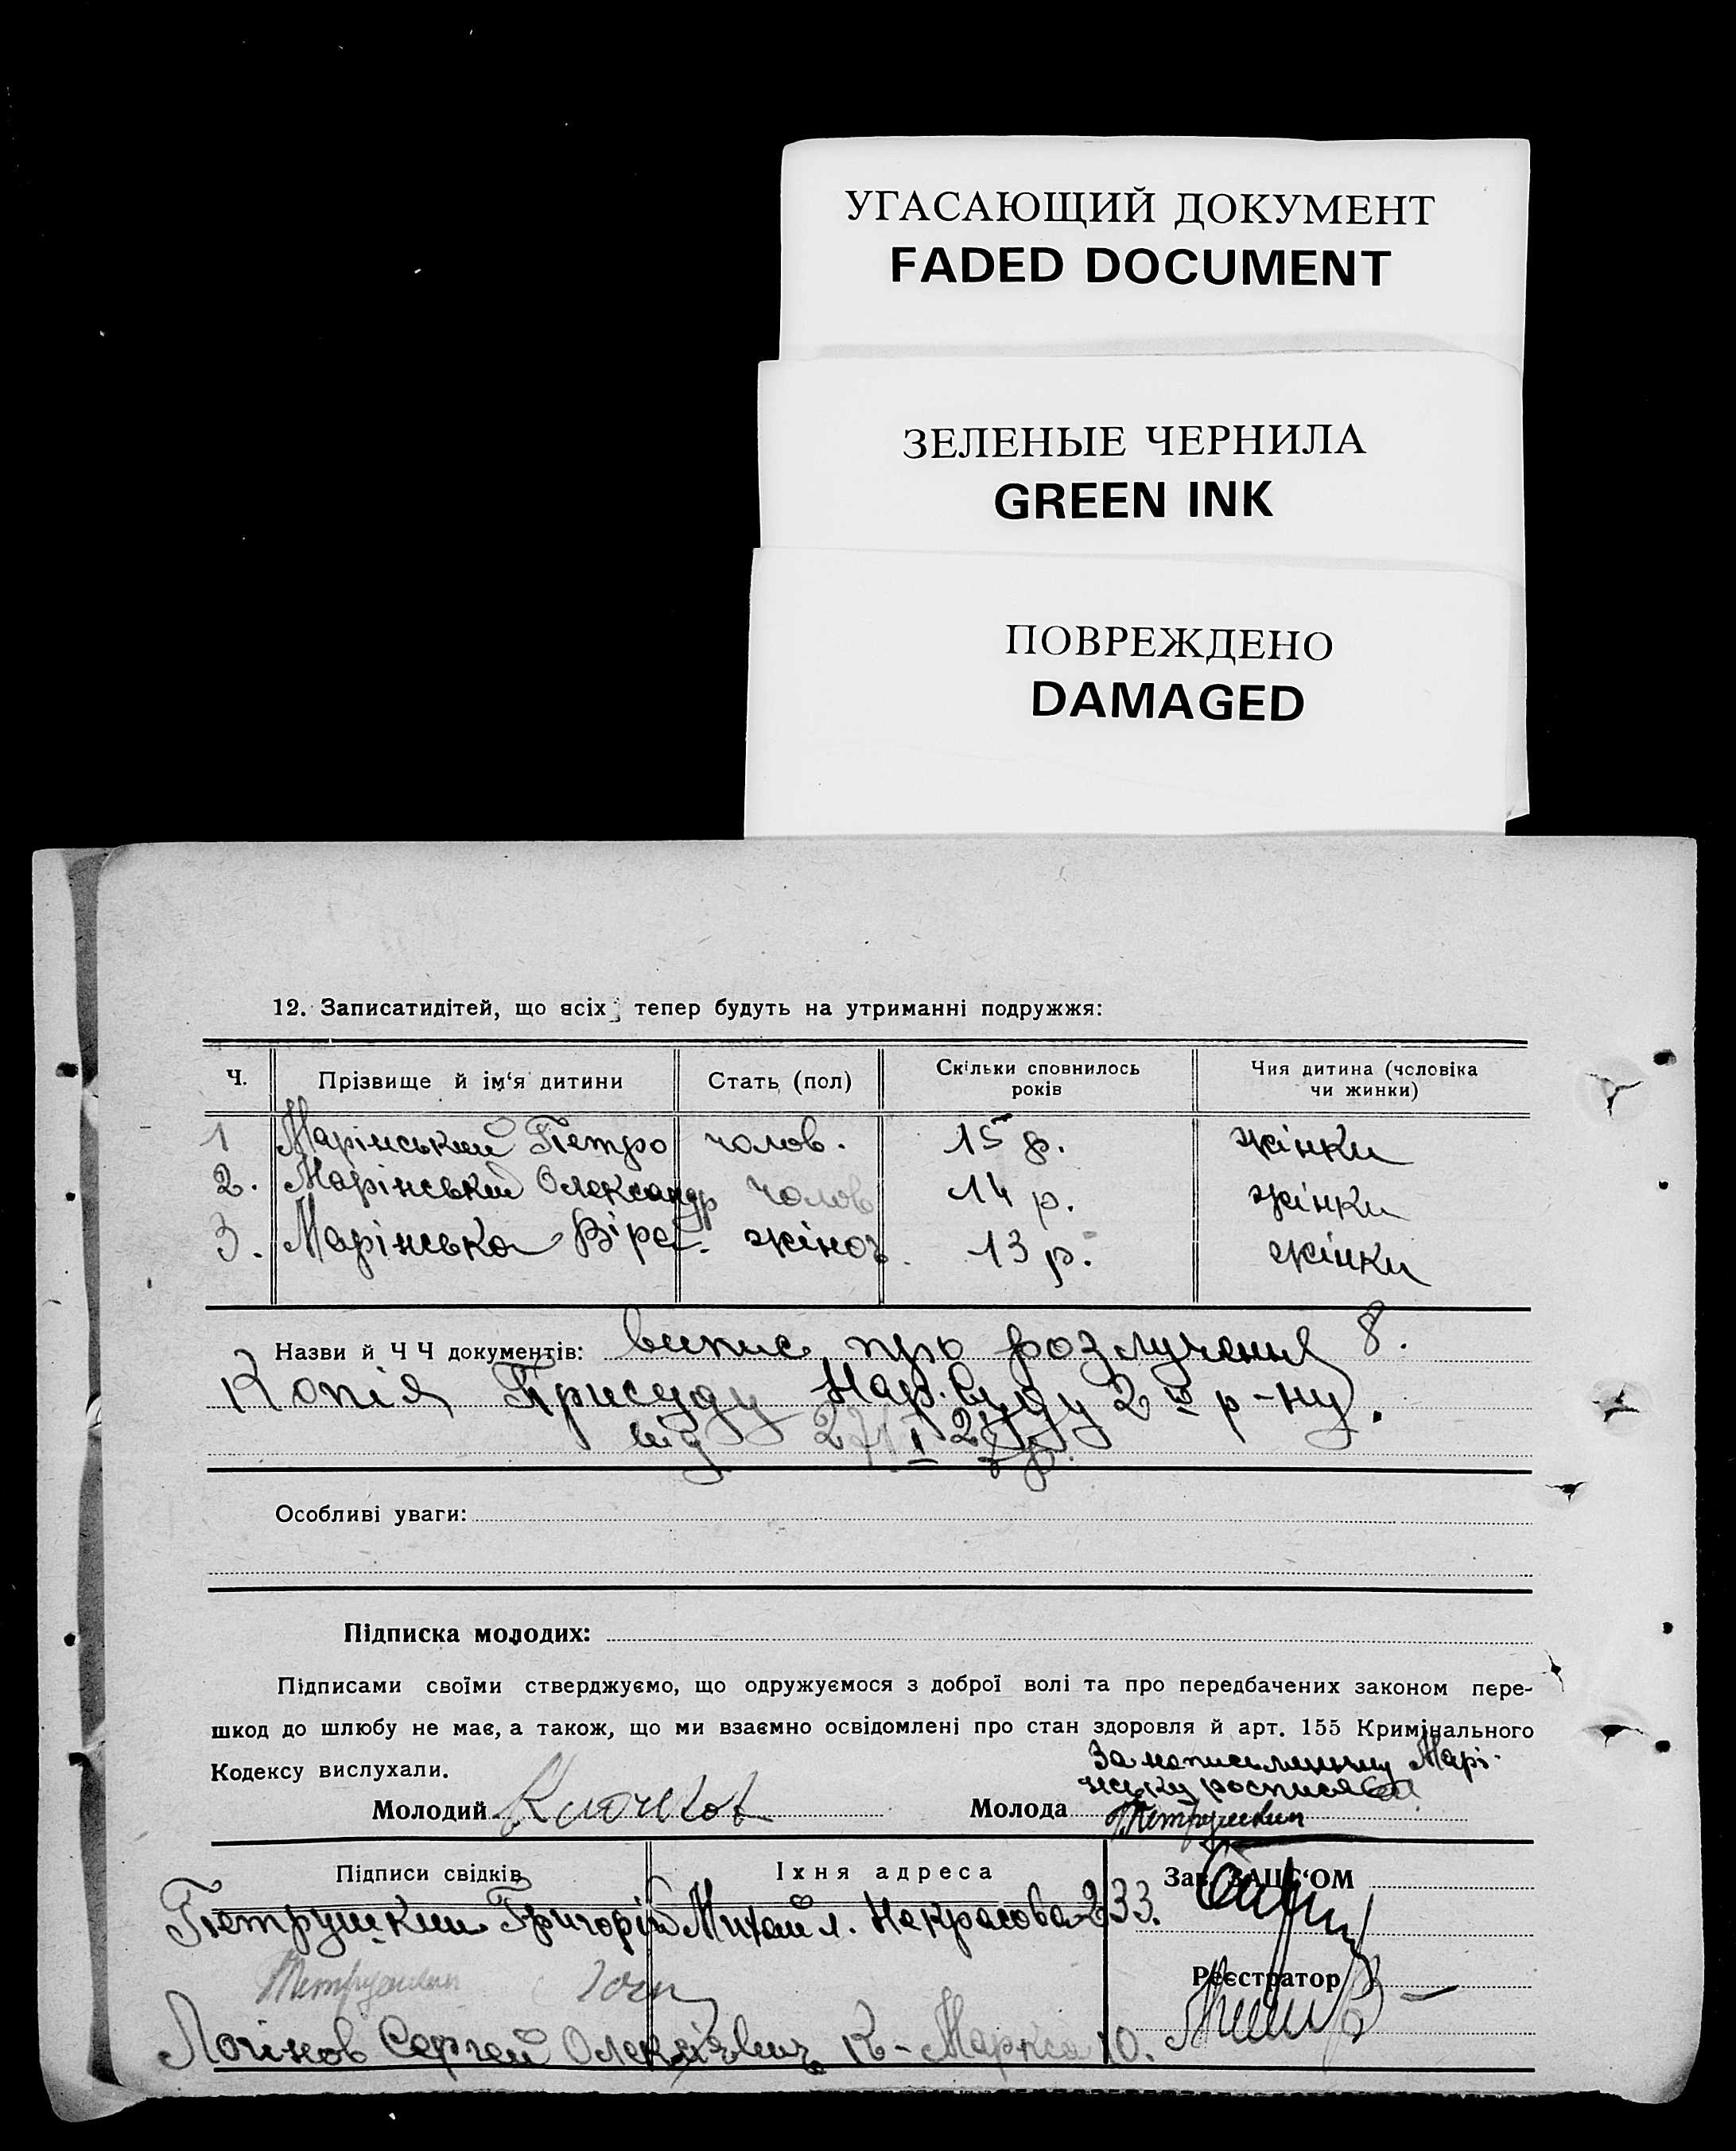 УГАСАЮЩИЙ ДОКУМЕНТ
FADED DOCUMENT
ЗЕЛЕНЫЕ ЧЕРНИЛА
GREEN INK
ПОВРЕЖДЕНО
DAMAGED
12. Записатидітей, що всіх тепер будуть на утриманні подружжя:
Ч. Прізвище й ім'я дитини Стать (пол) Скільки сповнилось років Чия дитина (чоловіка чи жинки)
1 Марінський Петро чолов. 15 р. жінки
2. Марінський Олександр чолов 14 р. жінки
3. Марінська Віра. жіноч. 13 р. жінки
Назви й Ч Ч документів: Випис про розлучення 8.
Копія Присуду Нар. Суду 2го р-ну.
від 27/I
Особливі уваги:
Підписка молодих:
Підписами своїми стверджуємо, що одружуємося з доброї волі та про передбачених законом пере-
шкод до шлюбу не має, а також, що ми взаємно освідомлені про стан здоровля й арт. 155 Кримінального
Кодексу вислухали.
За неписьменну Марі-
нську росписався
Молодий Клочков Молода Петрушкин
Підписи свідків Їхня адреса Зав. ЗАЦС'ОМ
Петрушкин Григорій Михайл. Некрасова 33.
Петрушкин
Реєстратор
Логінов Сергей Олексієвич К-Маркса 10.